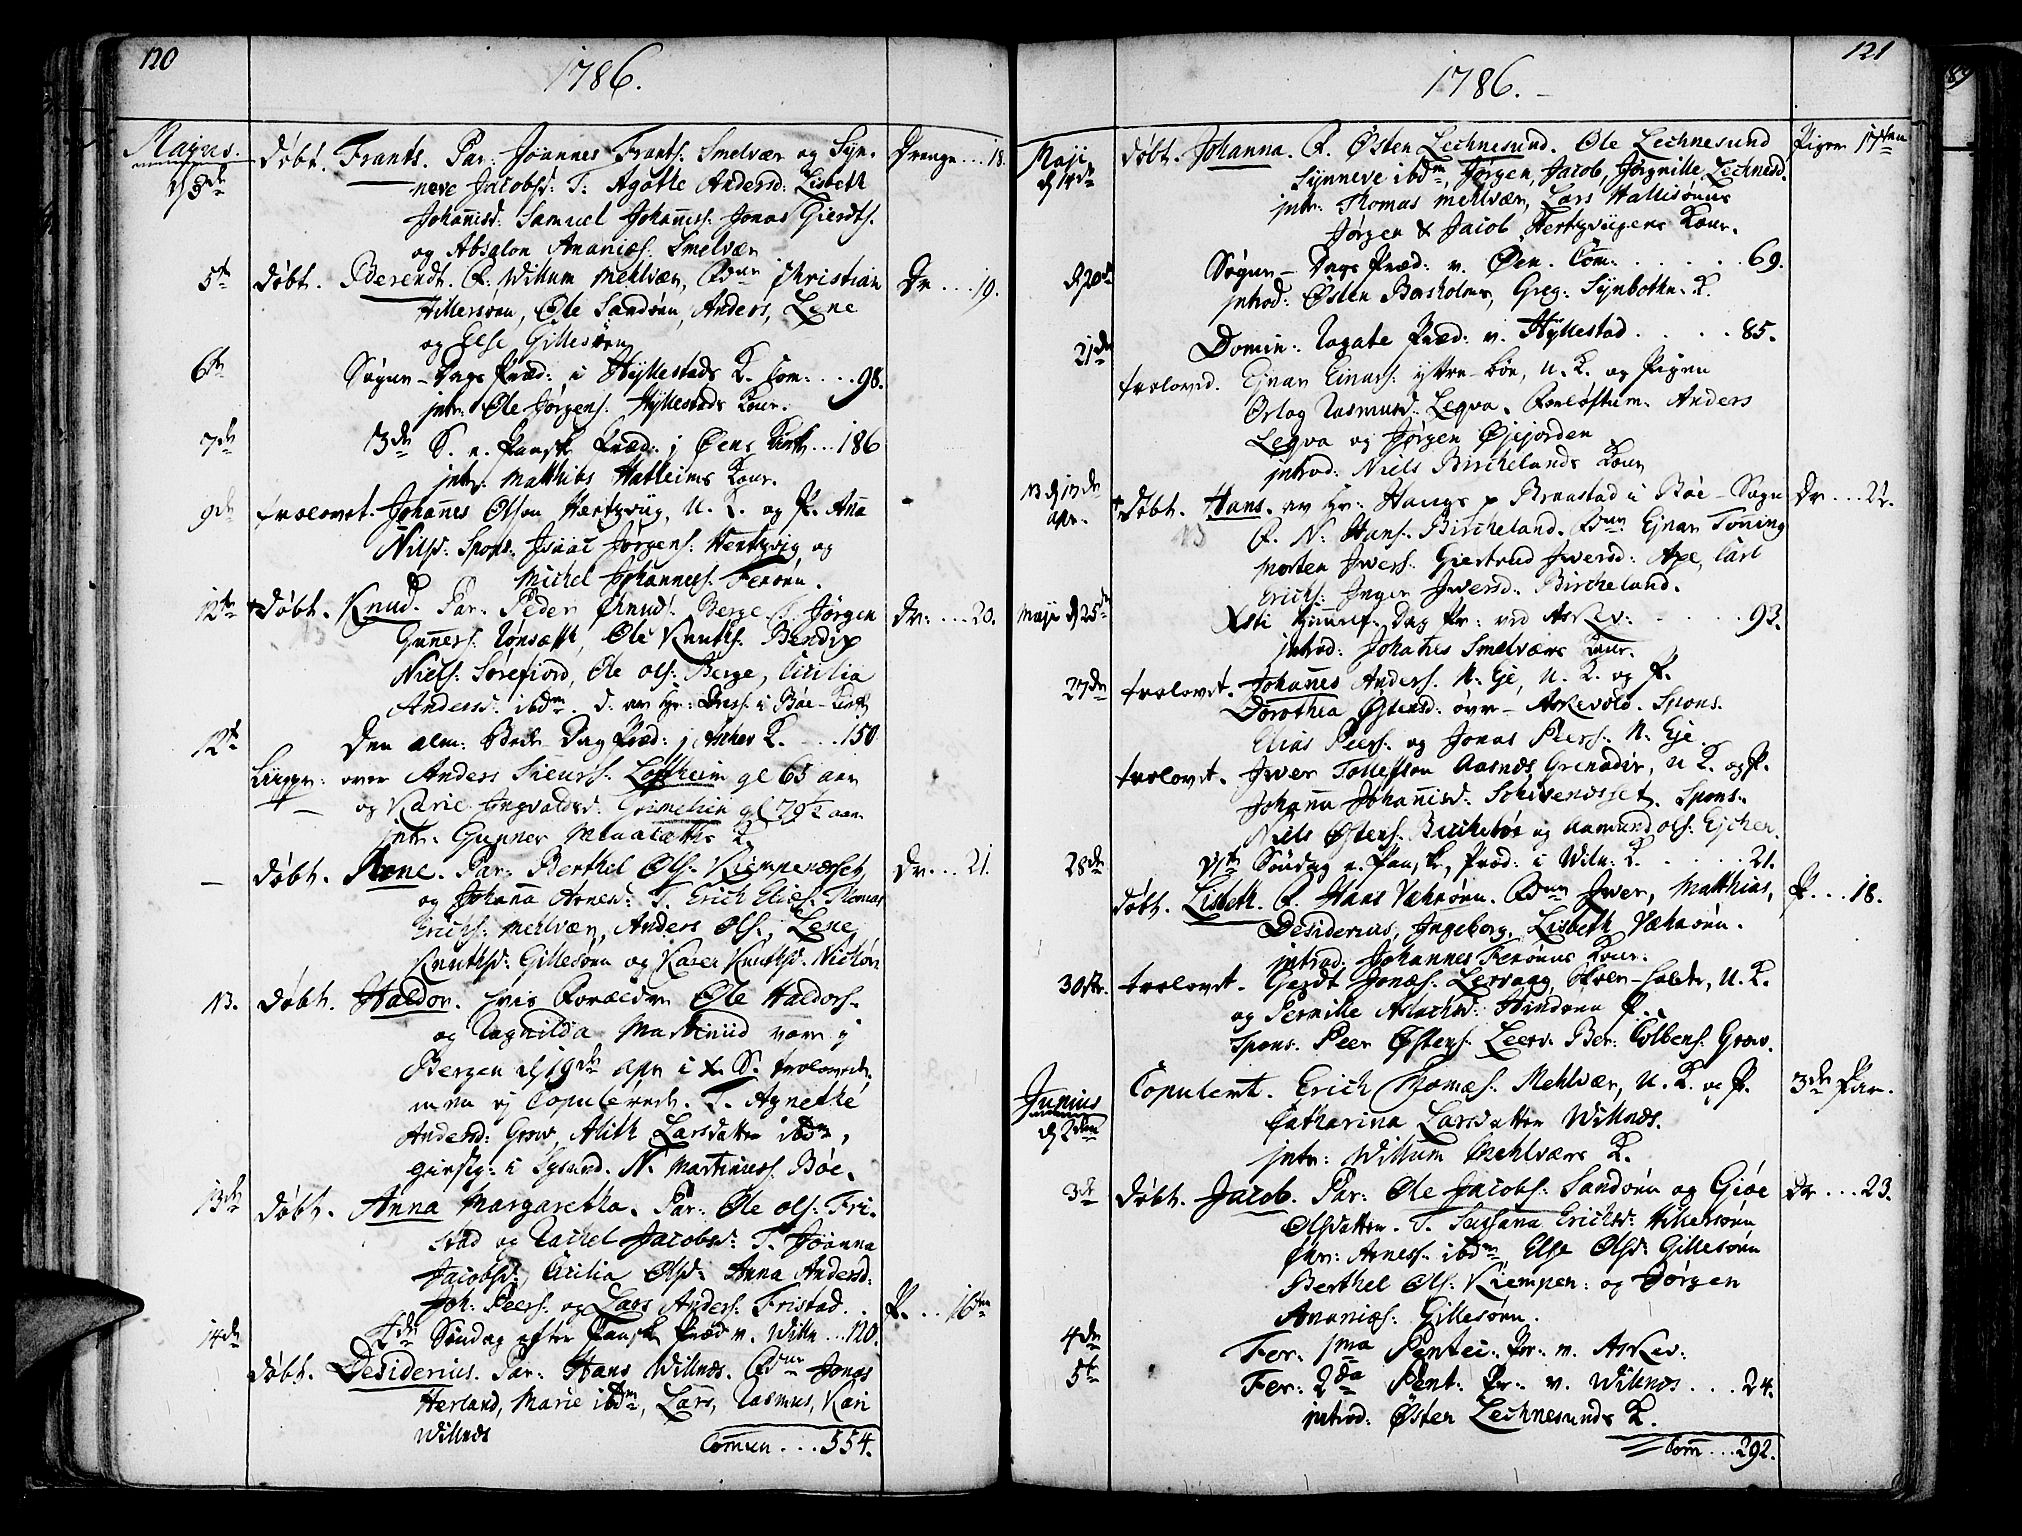 120
1786.
Majus.
d 3de
døbt. Frants. Par: Joannes Frants: Smelvær og Syn-
neve Jacobsd: T: Agathe Andersd: Lisbeth
Johannisd: Samuel Johanness: Jonas Gierdts:
og Absalon Ananiæs: Smelvær
Drenge ... 18.
5te døbt. Berendt. F. Willum Mehlvær, Christian
Hillersøen, Ole Sandøen, Anders, Lene
og Else Gillesøen
Dr ... 19.
6te Søgne-Dags Præd: i Hyllestads K. Com: ... 98.
intr: Ole Jørgens: Hyllestads Kone.
7de 3de S. e. Paask Præd: i Øens Kirke ... 186
intr: Matthias Hatleims Kone.
9de trolovet. Johannes Olson Hertzvig, U. K. og P. Ana
Nilsd: Spons: Isaac Jørgens: Hertzvig og
Michel Johanness: Ferøen.
12te døbt. Knud. Par: Peder Berge F. Jørgen
Gunners: Tønsæth, Ole Knuths: Bendix
Niels: Sørefiord, Ole Ols: Berge, Cicilia
Andersd: ibdm. d. av Hr: i Bøe-Kirke
Dr: ... 20.
12te Den alm: Bede-Dag Præd: i Askev K. ... 150
Liigpr: over Anders Siurss: Løtheim gl 65 aar
og Karie Ingvaldsd: Grimelien gl 79½ aar
intr: Gunner K.
døbt. Arne. Par: Berthel Ols: Kiempenesset,
og Johanna Arnesd: T. Erich Elies: Thomas
Erichs: Mehlvær, Anders Ols:, Lene
Knuthsd: Gillesøen og Karen Knuthsd:
Dr ... 21.
13. døbt. Haldor. hvis Forældre Ole Haldors:
og Ragnilda vare i
Bergen d 19de apr i S. trolovede,
men ej Copulerede. T. Agnethe
Andersd: Grov, Alith Larsdatter ibdm,
i Sysund. N. Martinuss: Bøe.
13de døbt. Anna Margaretha. Par: Ole Ols: Fri-
stad og Rachel Jacobsd: T. Joanna
Jacobsd:, Cicilia Olsd: Anna Andersd:
Joh: Peers: og Lars Anders: Fristad.
P. ... 16ten
14de 4de Søndag efter Paask Præd v. Willn ... 120.
døbt. Desiderius. Par: Hans Willnæs. Jonas
Herland, Marie ibdm, Lars, Rasmus, Kari
Willnæs
Comun ... 554.
121
1786.
Maji
d 14de
døbt. Johanna. F. Østen Lechnesund. Ole Lechnesund
Synneve ibdm, Jørgen, Jacob, Jørgnille Lechnesd.
intr: Thomas Mehlvær, Lars Hallisønns
Jørgen & Jacob Hertzviigens Koner.
Pigen 17ten
d 20de Søgne-Dags Præd: v. Øen. Com: ... 69.
introd: Østen Barsholms, Greg: Synbothn. K.
21de Domin: Rogate Præd: v. Hyllestad ... 85.
trolovd. Ejnar Einars: yttre-bøe, U. K. og Pigen
Orlog Rasmusd: Leqva. Forløftsm: Anders
Leqva og Jørgen Øjejorden
introd: Niels Birchelands Kone
13 d 13de
apr.
døbt. Hans. av Hr: Hauge p Braastad i Bøe-Sogn
F. N: Hans: Bircheland. Ejnar Tøning
Morten Jwers: Giertrud Jwersd: Axe, Carl
Erichs: Inger Jwersd: Bircheland.
Dr ... 22.
Maji d 25de Xsti Himmelf. Dag Pr: ved Askev: ... 93.
introd: Johannes Smelværs Kone.
27de trolovet. Johannes Anders: N: Eje, U. K. og P.
Dorothea Østensd: øvre-Askevold. Spons.
Elias Peers: og Jonas Peers: N: Eje.
trolovet. Jwer Tollefson Aasnæs Grenadir, U K. og P.
Johanna Johannisd: Solesenesset. Spons:
Niels Østens: Birchebøe og Aamund Ols: Ejcher.
28de Vte Søndag e. Paask, Præd: i Wiln: K. ... 21.
døbt. Lisbeth. F. Hans Vahrøen. Jwer, Matthias,
Desiderius, Ingeborg, Lisbeth Væhrøen.
introd: Johannes Ferøens Kone:
P. ... 18.
30te. trolovet. Gerdt Jonæs: Leervaag, U. K.
og Pernille Aslachsd: Hindøen P.
Spons. Peer Østens: Leerv: Ber: Colbens: Grov.
Junius
d 2den
Copulert. Erich Thomæs: Mehlvær, U. K. og P.
Catharina Larsdatter Willnæs.
intr: Willum Mehlværs K.
3de Par.
3de døbt. Jacob. Par: Ole Jacobs: Sandøen og Gjøe
Olsdatter. T. Susanna Erichsd: Hillersøen
Chr: Arness: ibdm Else Olsd: Gillesøen
Berthel Ols: Kiempen: og Jørgen
Ananiæs: Gillesøen.
Dr ... 23.
4de Fer: 1ma Pentec: Pr: v. Askev:
5te Fer: 2da Pent: Pr: v. Willnæs ... 24.
introd: Østen Lechnesunds K.
Com ... 292.